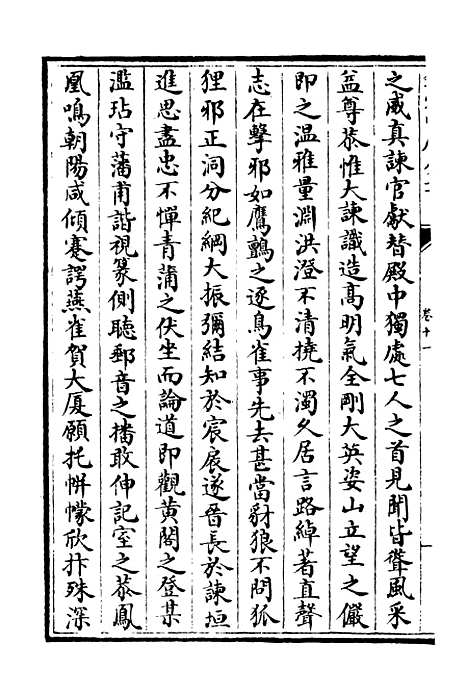 卷十一
之威真諫官獻替殿中獨處七人之首見聞皆聳風采
益尊恭惟大諫識造高明氣全剛大英姿山立望之儼
即之温雅量淵洪澄不清撓不濁久居言路綽著直聲
志在擊邪如鷹鸇之逐鳥雀事先去甚當豺狼不問狐
狸邪正洞分紀綱大振彌結知於宸扆遂晉長於諫垣
進思盡忠不憚青蒲之伏坐而論道即觀黄閣之登某
濫玷守藩甫諧視篆側聽郵音之播敢伸記室之恭鳳
凰鳴朝陽咸傾蹇諤燕雀賀大厦願托帡幪欣抃殊深